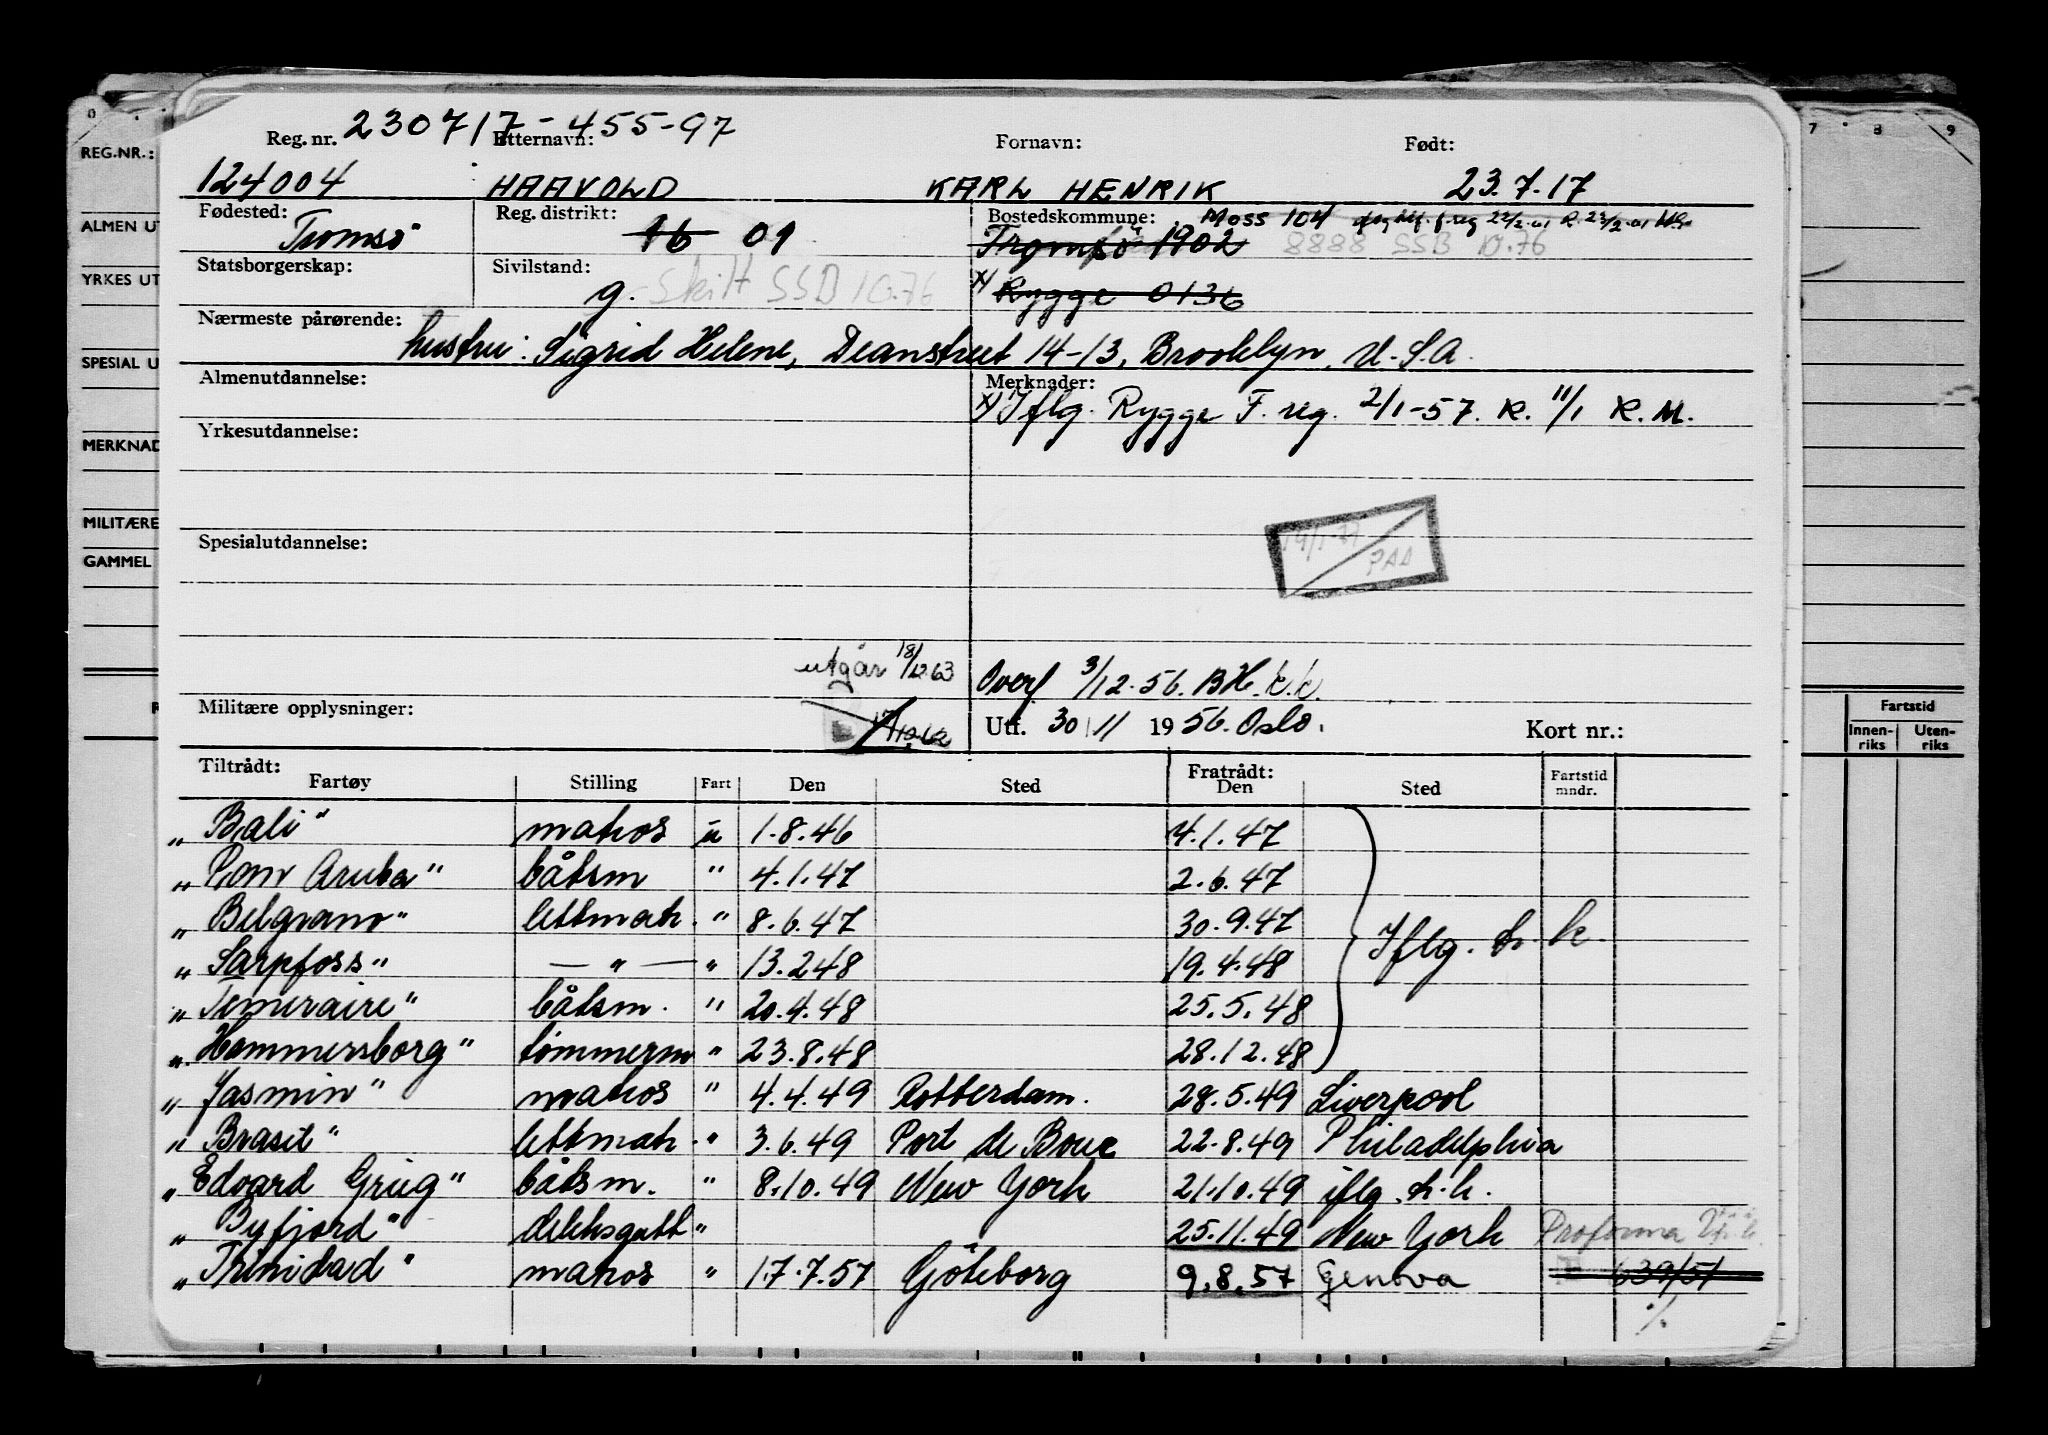 230717-455-97
Reg. nr. Etternavn: Fornavn: Født:
124004 HAAVOLD KARL HENRIK 23.7.17
Fødested: Reg. distrikt: Bostedskommune: Moss 104
Tromsö 16 01 Tromsö 1902 8888 SSB 10.76
Statsborgerskap: Sivilstand:
g. Skilt SSB 10.76 x) Rygge 0136
Nærmeste pårørende:
hustru: Sigrid Helene, Deanstreet 14-13, Brooklyn, U.S.A.
Almenutdannelse: Merknader:
x) Iflg. Rygge F. reg. 2/1-57. K. 11/1 K. M.
Yrkesutdannelse:
Spesialutdannelse:
PAA
utgår 18/12.63 Overf 3/12.56. BH. k.k.
Militære opplysninger: Utf. 30/11 1956. Oslo. Kort nr.:
Tiltrådt: Fratrådt:
Fartøy Stilling Fart Den Sted Den Sted Fartstid mndr.
„Bali" matros u 1.8.46 4.1.47
„Pan Aruba" båtsm " 4.1.47 2.6.47
„Belgrano" lettmatr. " 8.6.47 30.9.47 Iflg. h.k.
„Sarpfoss" — " — " 13.2.48 19.4.48
„Temeraire" båtsm. " 20.4.48 25.5.48
„Hammersborg" tömmerm " 23.8.48 28.12.48
„Jasmin" matros " 4.4.49 Rotterdam. 28.5.49 Liverpool
„Brasil" lettmatr. " 3.6.49 Port de Bouc 22.8.49 Philadelphia
„Edvard Grieg" båtsm. " 8.10.49 New York 21.10.49 iflg. h.k.
„Byfjord" dekksgutt " 25.11.49 New York Proforma
„Trinidad" matros " 17.7.57 Göteborg 9.8.57 Genova 639/51
REG.NR.:
ALMEN UT
YRKES UT
SPESIAL U
MERKNAD
MILITÆRE
GAMMEL
7 8 9
Fartstid
Innen-riks Uten-riks